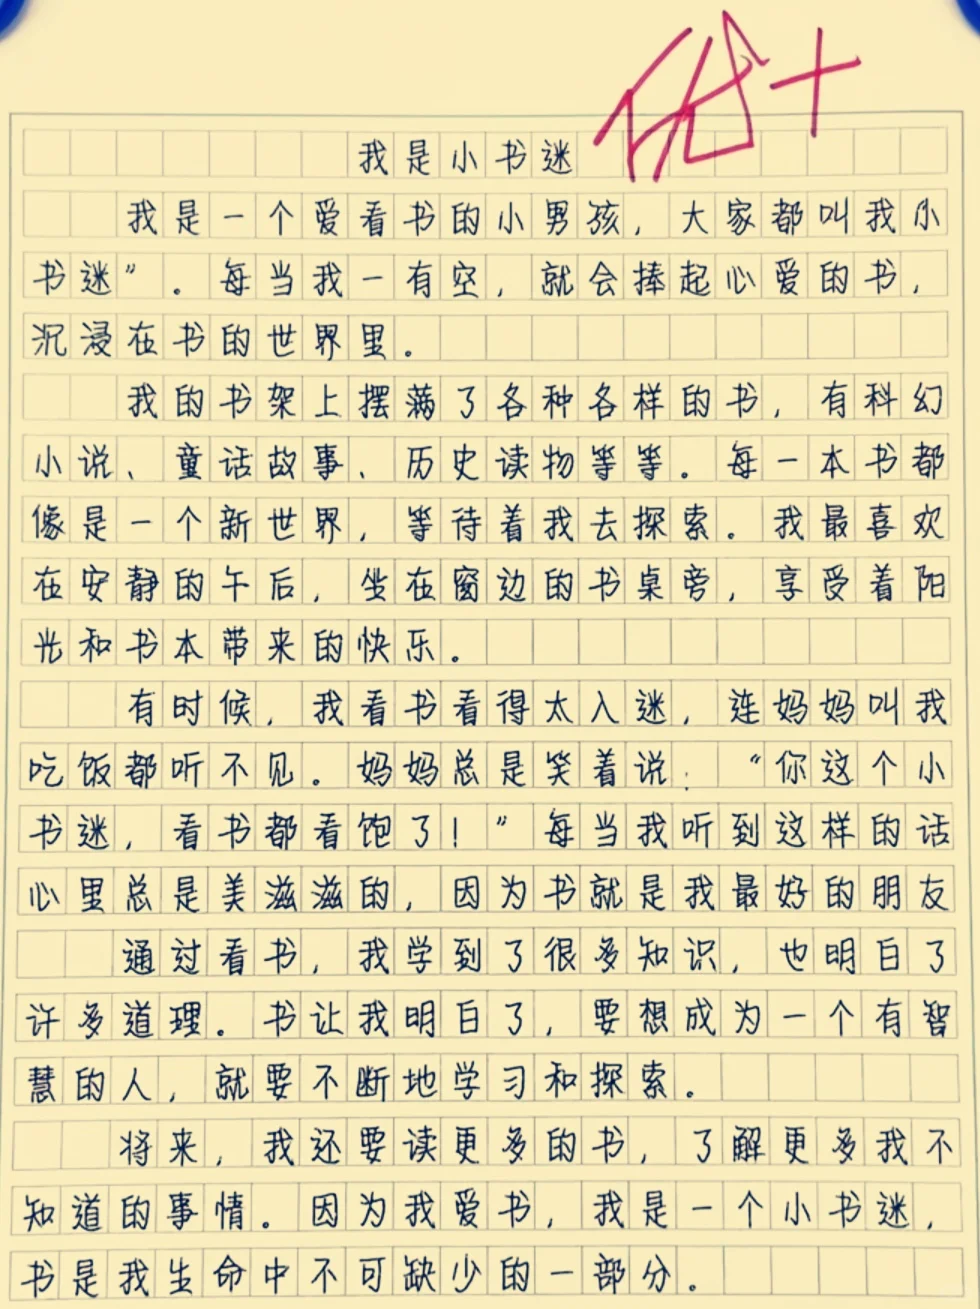 优+
我是小书迷
我是一个爱看书的小男孩，大家都叫我小
书迷”。每当我一有空，就会捧起心爱的书，
沉浸在书的世界里。
我的书架上摆满了各种各样的书，有科幻
小说、童话故事、历史读物等等。每一本书都
像是一个新世界，等待着我去探索。我最喜欢
在安静的午后，坐在窗边的书桌旁，享受着阳
光和书本带来的快乐。
有时候，我看书看得太入迷，连妈妈叫我
吃饭都听不见。妈妈总是笑着说：“你这个小
书迷，看书都看饱了！”每当我听到这样的话
心里总是美滋滋的，因为书就是我最好的朋友
通过看书，我学到了很多知识，也明白了
许多道理。书让我明白了，要想成为一个有智
慧的人，就要不断地学习和探索。
将来，我还要读更多的书，了解更多我不
知道的事情。因为我爱书，我是一个小书迷，
书是我生命中不可缺少的一部分。